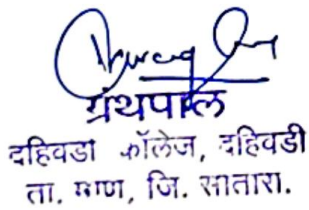 ग्रंथपाल
दहिवडी कॉलेज, दहिवडी
ता. माण, जि. सातारा.